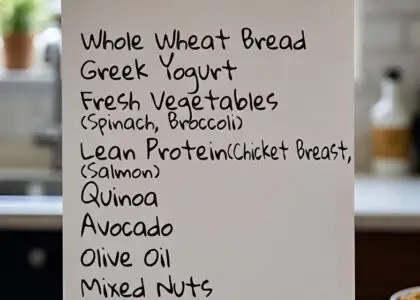 Whole Wheat Bread
Greek Yogurt
Fresh Vegetables
(Spinach, Broccoli)
Lean Protein(Chicket Breast,
(Salmon)
Quinoa
Avocado
Olive Oil
Mixed Nuts